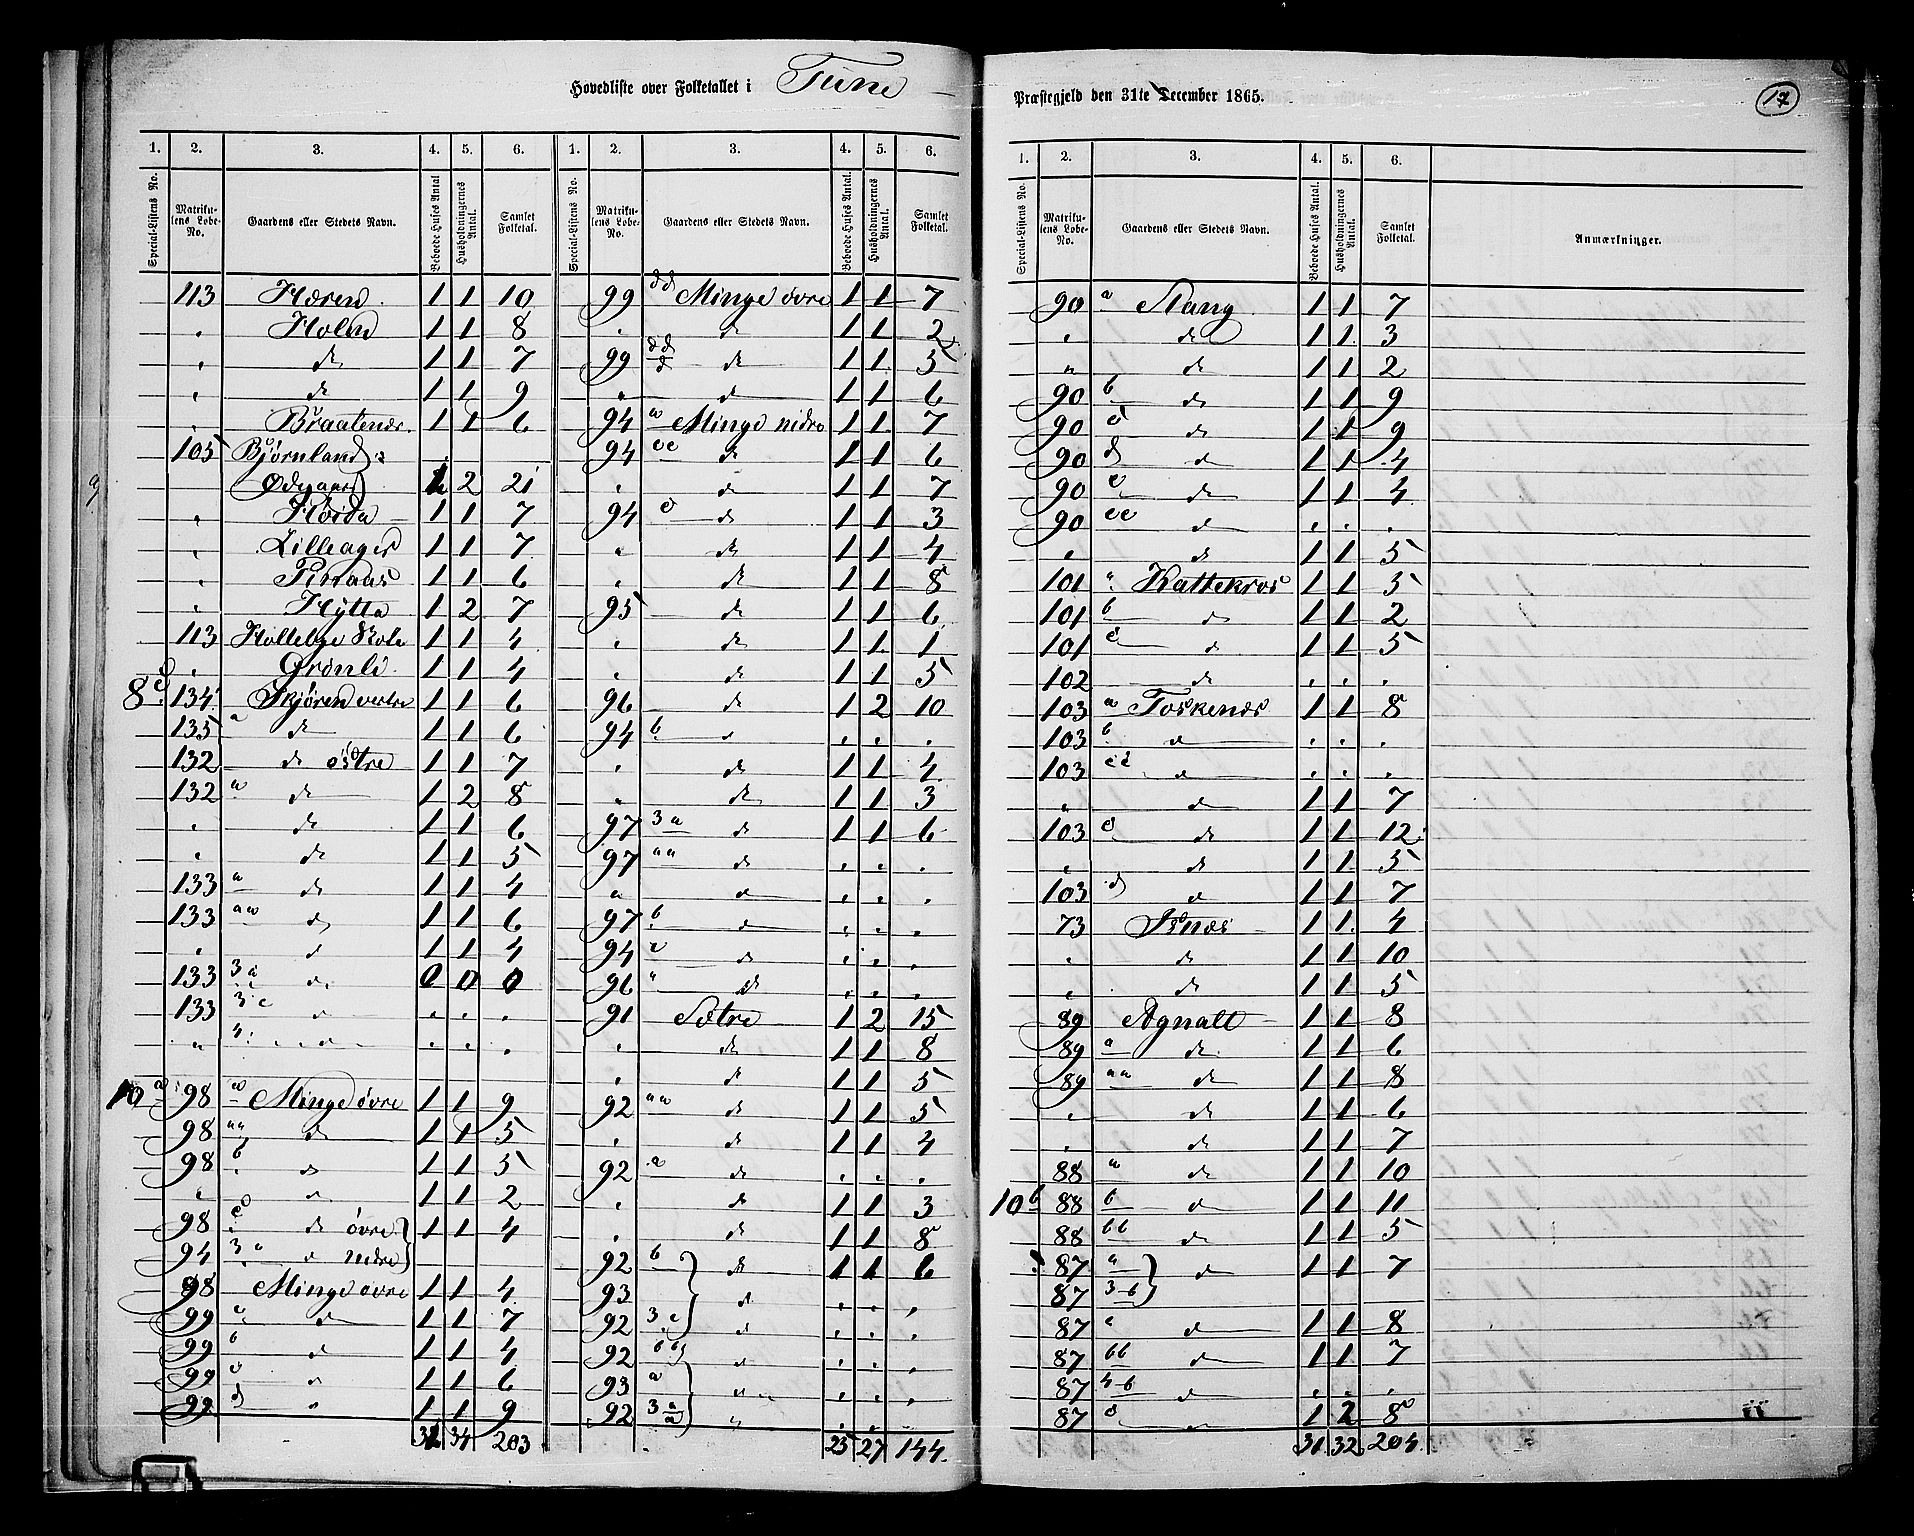 Hovedliste over Folketallet i Tune
Præstegjeld den 31te December 1865.
17
1. 2. 3. 4. 5. 6. 1. 2. 3. 4. 5. 6.
Special-Listens No. Matrikulens Løbe-No. Gaardens eller Stedets Navn. Beboede Huses Antal Husholdningernes Antal. Samlet Folketal. Special-Listens No. Matrikulens Løbe-No. Gaardens eller Stedets Navn. Beboede Huses Antal. Husholdningernes Antal. Samlet Folketal.
113 Haren 1 1 10
" Holen 1 1 8
" do 1 1 7
" do 1 1 9
" Braatenæs 1 1 6
105 Bjørnland
Ødegaard 1 2 21
" Høida 1 1 7
" Lilleager 1 1 7
" 1 1 6
" Hytta 1 2 7
113 Hollebye Skole 1 1 4
" Grønli 1 1 4
8 c 134 Skjøren vestre 1 1 6
135 a do 1 1 6
132 do østre 1 1 7
132 a do 1 2 8
" do 1 1 6
" do 1 1 5
133 a do 1 1 4
133 aa do 1 1 6
" do 1 1 4
133 3 a do 0 0 0
133 3 c do . . .
" 4. do . . .
10 a 98 a Minge øvre 1 1 9
98 aa do 1 1 5
98 b do 1 1 5
" do 1 1 2
98 c do øvre 1 1 4
94 3 a do nedre
98 Minge øvre 1 1 4
99 a do 1 1 7
99 b do 1 1 4
99 c do 1 1 6
99 d do 1 1 9
31 34 203
99 dd Minge øvre 1 1 7
" do 1 1 2
99 dd d do 1 1 5
" do 1 1 6
94 a Minge nidre 1 1 7
94 cc do 1 1 6
" do 1 1 7
94 c do 1 1 3
" do 1 1 4
" do 1 1 8
95 do 1 1 6
" do 1 1 1
" do 1 1 5
96 do 1 2 10
94 b do . . .
" do 1 1 4
" do 1 1 3
97 3 a do 1 1 6
97 aa do . . .
" do . . .
97 b do . . .
94 do . . .
96 " do . . .
91 Sætre 1 2 15
" do 1 1 8
" do 1 1 5
92 aa do 1 1 5
" do 1 1 4
92 a do . . .
" do 1 1 3
" do 1 1 8
92 b do 1 1 6
93 do . . .
92 3 c do . . .
92 bb do . . .
93 a " . . .
92 3 a "
25 27 144
1. 2. 3. 4. 5. 6.
Special-Listens No. Matrikulens Løbe-No. Gaardens eller Stedets Navn. Beboede Huses Antal. Husholdningernes Antal. Samlet Folketal. Anmærkninger.
90 a Stang 1 1 7
" do 1 1 3
" do 1 1 2
90 b do 1 1 9
90 c do 1 1 9
90 d do 1 1 4
90 e do 1 1 4
90 ee do . . .
" do 1 1 5
101 " Kattekros 1 1 5
101 b do 1 1 2
101 c do 1 1 5
102 do . . .
103 a Toskenæs 1 1 8
103 b do . . .
103 cc do . . .
" do 1 1 7
103 c do 1 1 12
" do 1 1 5
103 d do 1 1 7
73 Isnæs 1 1 4
" do 1 1 10
" do 1 1 5
89 Agnalt 1 1 8
89 a do 1 1 6
89 aa do 1 1 8
" do 1 1 6
" do 1 1 7
88 a do 1 1 10
10 b 88 b do 1 1 11
88 bb do 1 1 5
87 a do 1 1 7
87 3 b
87 c do 1 1 8
87 bb do 1 1 7
87 4 b do . . .
87 d do 1 2 8
31 32 204